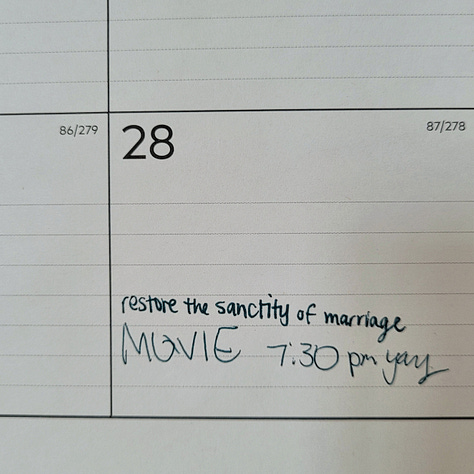 86/279
28
87/278
restore the sanctity of marriage
MOVIE 7:30 pm yay